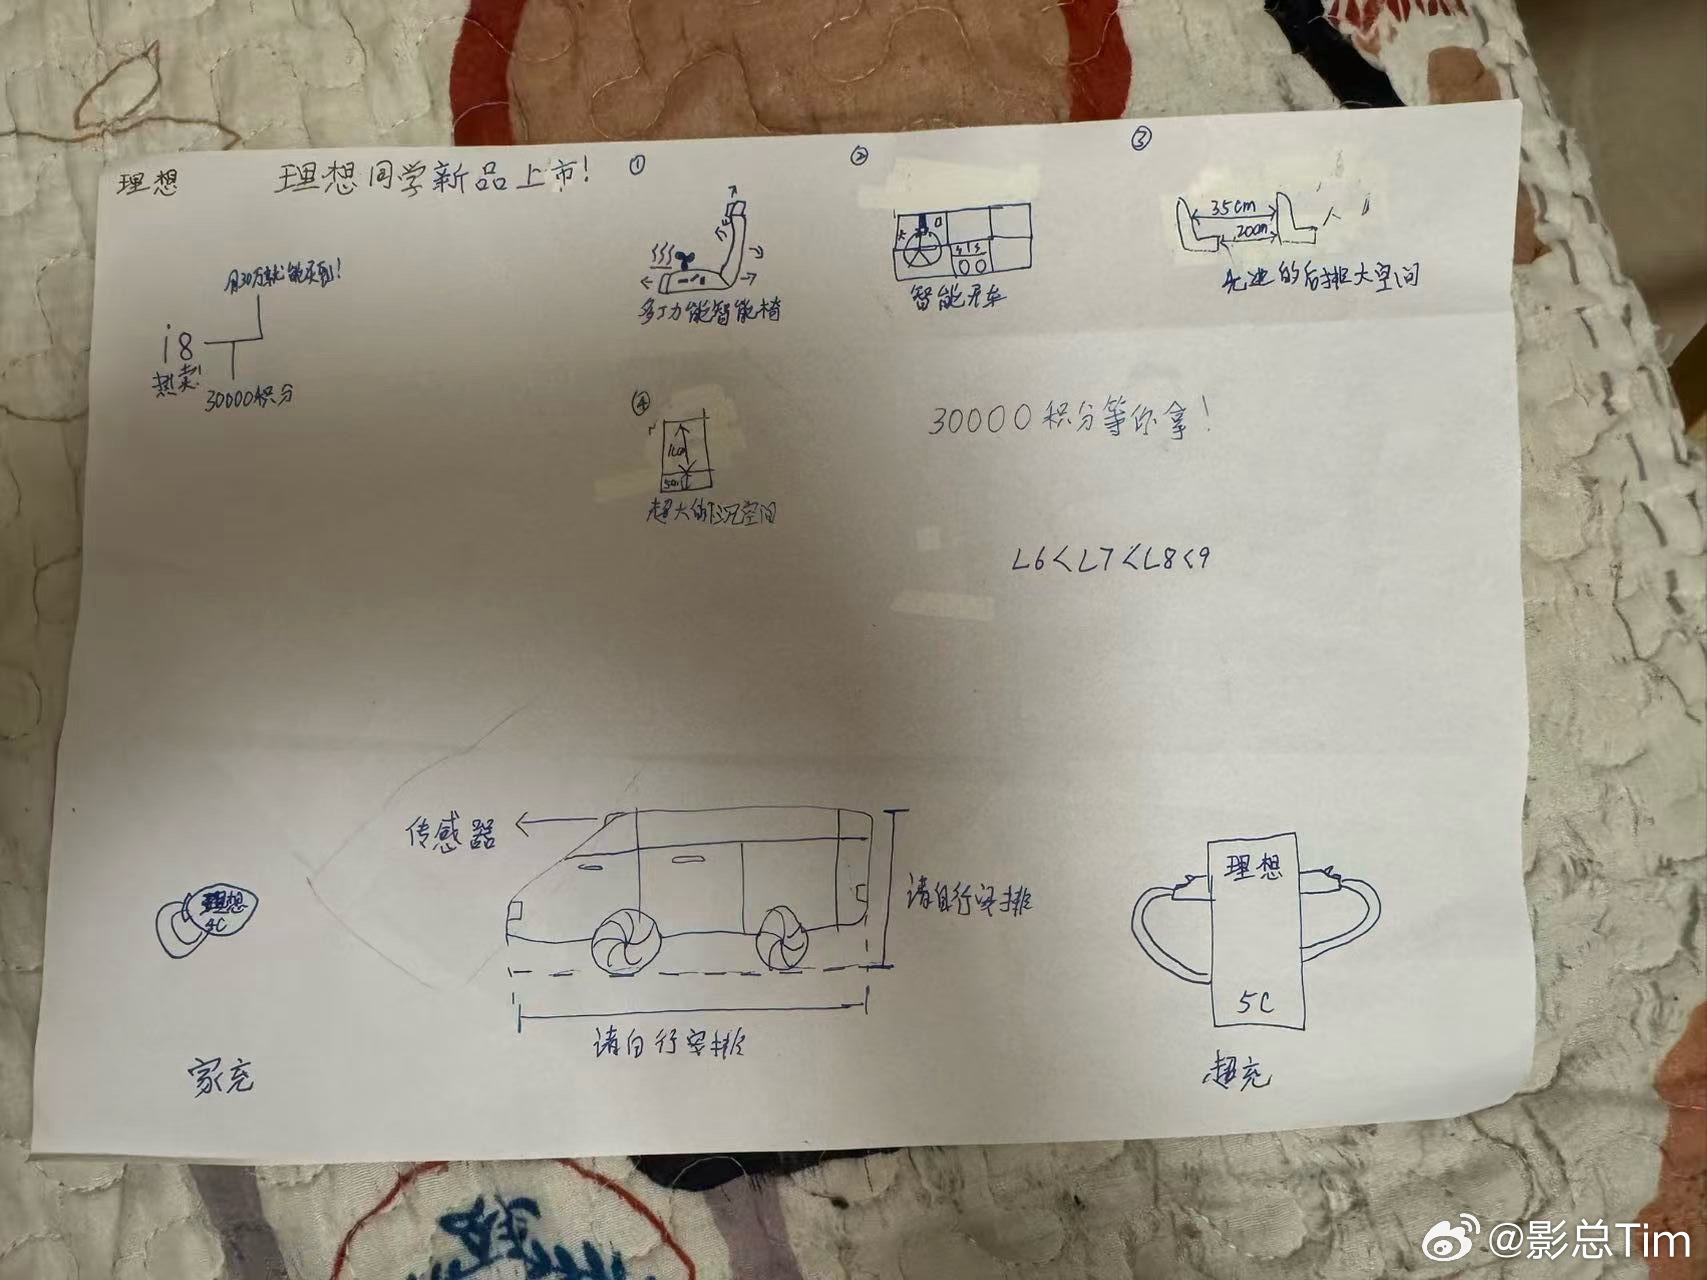 理想
理想同学新品上市！
①
②
③
多功能智能椅
智能开车
35cm
20cm
先进的后排大空间
i8
热卖！
30000积分
④
50
超大的
空间
30000积分等你拿！
L6<L7<L8<9
传感器
请自行安排
请自行安排
理想
4C
家充
理想
5C
超充
@影总Tim